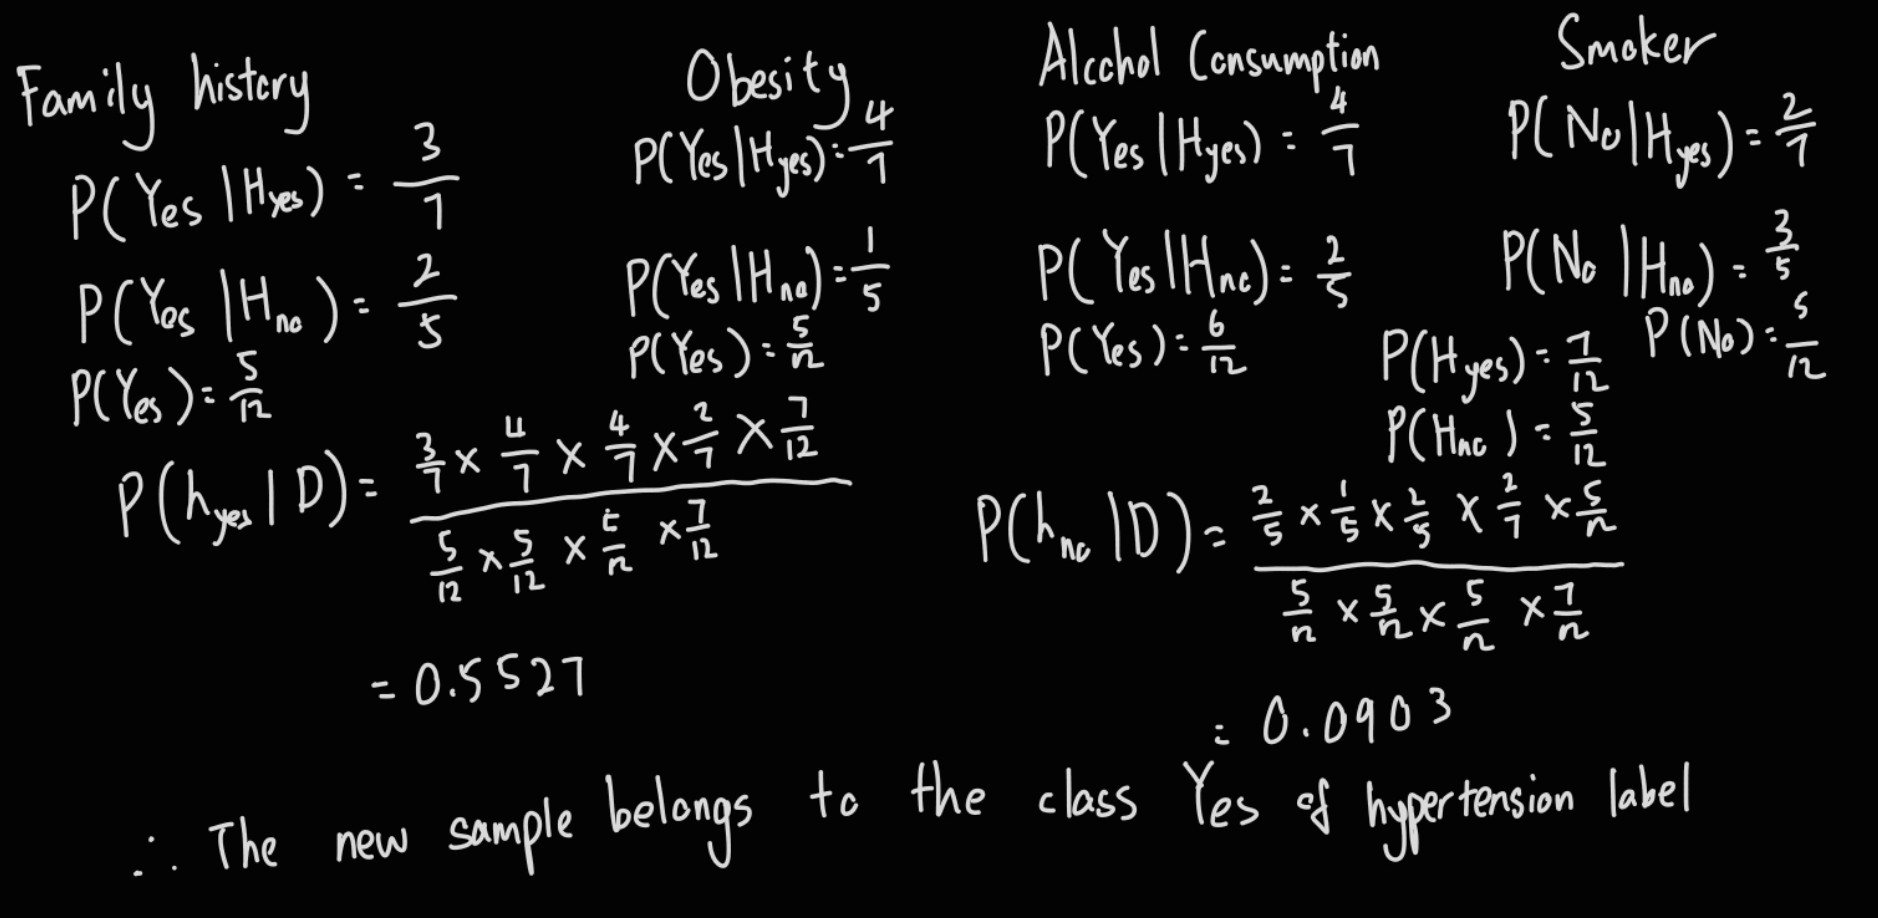 Family history
P(Yes | Hyes) = 3/7
P(Yes | Hno) = 2/5
P(Yes) = 5/12
Obesity
P(Yes | Hyes) = 4/7
P(Yes | Hno) = 1/5
P(Yes) = 5/12
Alcohol Consumption
P(Yes | Hyes) = 4/7
P(Yes | Hno) = 2/5
P(Yes) = 6/12
Smoker
P(No | Hyes) = 2/7
P(No | Hno) = 3/5
P(No) = 5/12
P(Hyes) = 7/12
P(Hno) = 5/12
P(hyes | D) = (3/7 × 4/7 × 4/7 × 2/7 × 7/12) / (5/12 × 5/12 × 5/12 × 7/12)
= 0.5527
P(hno | D) = (2/5 × 1/5 × 2/5 × 2/7 × 5/12) / (5/12 × 5/12 × 5/12 × 7/12)
= 0.0903
∴ The new sample belongs to the class Yes of hypertension label